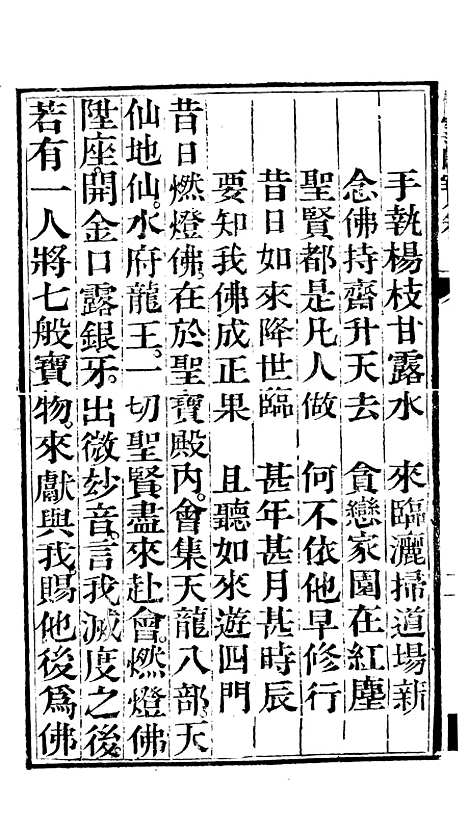 手執楊枝甘露水　來臨灑掃道場新
念佛持齋升天去　貪戀家園在紅塵
聖賢都是凡人做　何不依他早修行
昔日如來降世臨　甚年甚月甚時辰
要知我佛成正果　且聽如來遊四門
昔日燃燈佛。在於聖寶殿內。會集天龍八部。天
仙地仙。水府龍王。一切聖賢。盡來赴會。燃燈佛
陞座。開金口。露銀牙。出微妙音。言我滅度之後
若有一人將七般寶物。來獻與我。賜他後爲佛